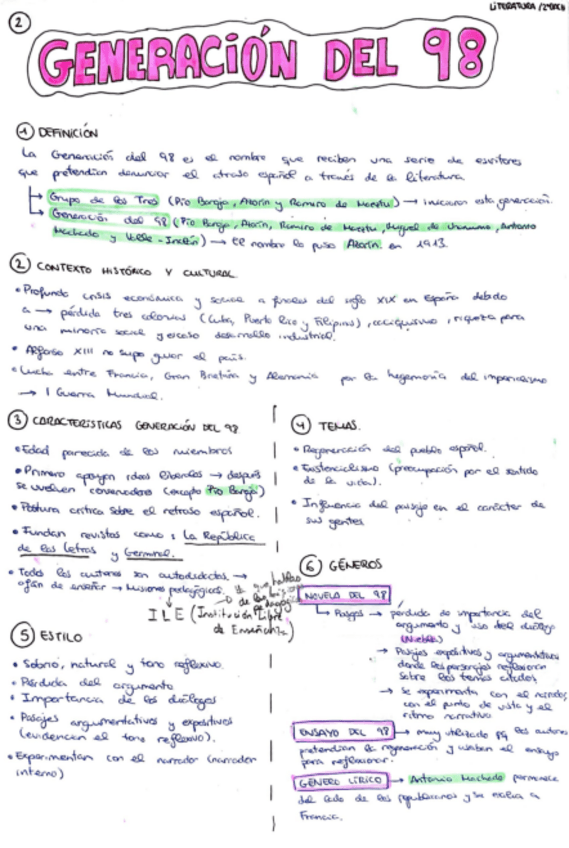 LITERATURA / 2ºBACH
2
GENERACIÓN DEL 98
1 DEFINICIÓN
La Generación del 98 es el nombre que reciben una serie de escritores
que pretendían denunciar el atraso español a través de la literatura
→ Grupo de los Tres (Pío Baroja, Azorín y Ramiro de Maeztu) → iniciaron esta generación.
→ Generación del 98 (Pío Baroja, Azorín, Ramiro de Maeztu, Miguel de Unamuno, Antonio
Machado y Valle-Inclán) → el nombre lo puso Azorín en 1913.
2 CONTEXTO HISTÓRICO Y CULTURAL
• Profunda crisis económica y social a finales del siglo XIX en España debido
a → pérdida tres colonias (Cuba, Puerto Rico y Filipinas), caciquismo, riqueza para
una minoría social y escaso desarrollo industrial.
• Alfonso XIII no supo guiar el país.
• Lucha entre Francia, Gran Bretaña y Alemania por la hegemonía del imperialismo
→ I Guerra Mundial.
3 CARACTERÍSTICAS GENERACIÓN DEL 98
• Edad parecida de los miembros
• Primero apoyan ideas liberales → después
se vuelven conservadores (excepto Pío Baroja)
• Postura crítica sobre el retraso español.
• Fundan revistas como: La República
de las Letras y Germinal.
• Todos los autores son autodidactas →
afán de enseñar → Misiones pedagógicas.
ILE (Institución Libre
de Enseñanza)
4 TEMAS.
• Regeneración del pueblo español.
• Existencialismo (preocupación por el sentido
de la vida).
• Influencia del paisaje en el carácter de
sus gentes.
5 ESTILO
• Sobrio, natural y tono reflexivo
• Pérdida del argumento
• Importancia de los diálogos
• Pasajes argumentativos y expositivos
(evidencian el tono reflexivo).
• Experimentan con el narrador (narrador
interno)
6 GÉNEROS
NOVELA DEL 98
→ Rasgos → pérdida de importancia del
argumento y uso del diálogo
(Niebla)
→ Pasajes expositivos y argumentativos
donde los personajes reflexionan
sobre los temas citados
→ Se experimenta con el narrador,
con el punto de vista y el
ritmo narrativo
ENSAYO DEL 98 → muy utilizado pq los autores
pretendían la regeneración y usaban el ensayo
para reflexionar.
GÉNERO LÍRICO → Antonio Machado permanece
del lado de los republicanos y se exilia a
Francia.